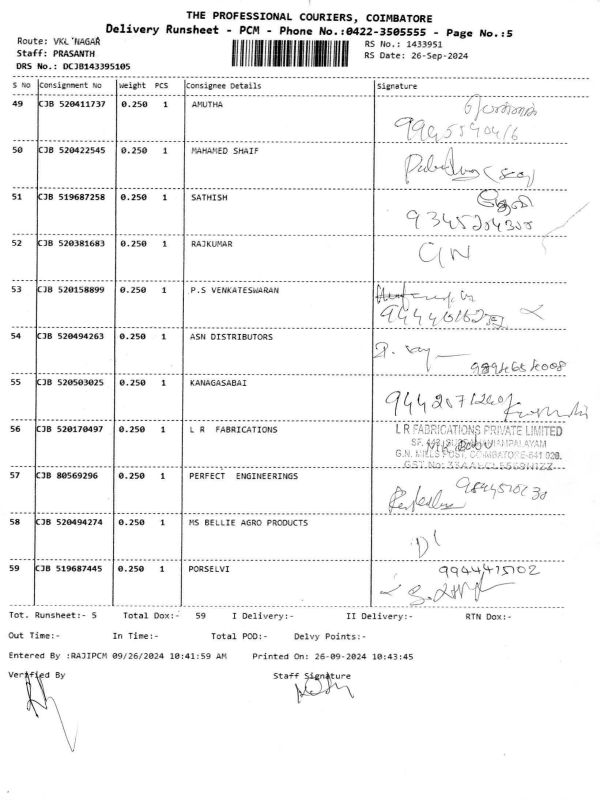 THE PROFESSIONAL COURIERS, COIMBATORE
Delivery Runsheet - PCM - Phone No.:0422-3505555 - Page No.:5
Route: VKL NAGAR
RS No.: 1433951
Staff: PRASANTH
RS Date: 26-Sep-2024
DRS No.: DCJB143395105
S No Consignment No Weight PCS Consignee Details Signature
49 CJB 520411737 0.250 1 AMUTHA
50 CJB 520422545 0.250 1 MAHAMED SHAIF
51 CJB 519687258 0.250 1 SATHISH
9345204300
52 CJB 520381683 0.250 1 RAJKUMAR
53 CJB 520158899 0.250 1 P.S VENKATESWARAN
54 CJB 520494263 0.250 1 ASN DISTRIBUTORS
55 CJB 520503025 0.250 1 KANAGASABAI
56 CJB 520170497 0.250 1 L R FABRICATIONS L R FABRICATIONS PRIVATE LIMITED
G.N. MILLS POST, COIMBATORE-641 029.
57 CJB 80569296 0.250 1 PERFECT ENGINEERINGS
58 CJB 520494274 0.250 1 MS BELLIE AGRO PRODUCTS
59 CJB 519687445 0.250 1 PORSELVI 9944415102
Tot. Runsheet:- 5 Total Dox:- 59 I Delivery:- II Delivery:- RTN Dox:-
Out Time:- In Time:- Total POD:- Delvy Points:-
Entered By :RAJIPCM 09/26/2024 10:41:59 AM Printed On: 26-09-2024 10:43:45
Verified By Staff Signature